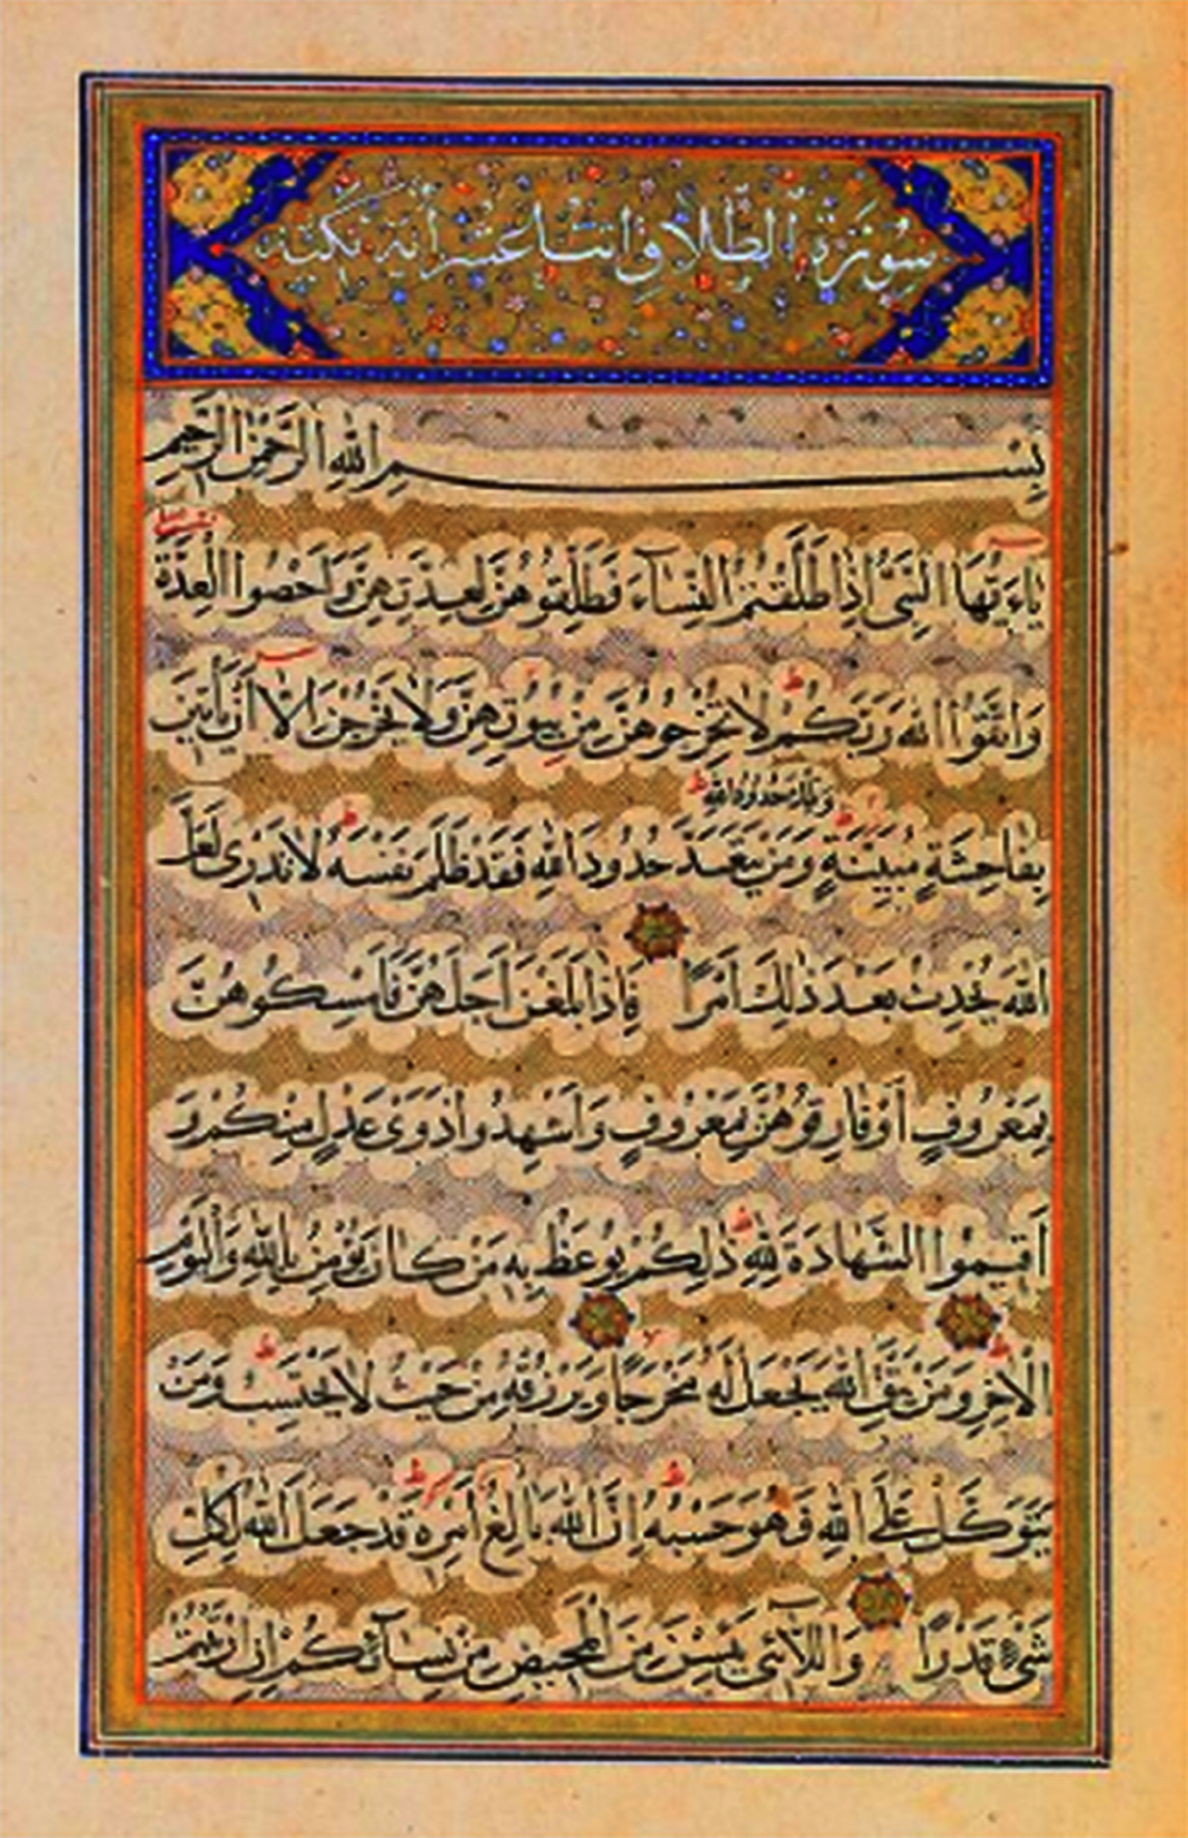 سُورَةُ الطَّلَاقِ اثنتا عشر آية
بِسْمِ اللهِ الرَّحْمٰنِ الرَّحِيمِ
يَاءَيُّهَا النَّبِيُّ إِذَا طَلَّقْتُمُ النِّسَآءَ فَطَلِّقُوهُنَّ لِعِدَّتِهِنَّ وَاَحْصُوا الْعِدَّةَ
وَاتَّقُوا اللهَ رَبَّكُمْ لَا تُخْرِجُوهُنَّ مِنْ بُيُوتِهِنَّ وَلَا يَخْرُجْنَ اِلَّا اَنْ يَأْتِينَ
وَتِلْكَ حُدُودُ اللهِ
بِفَاحِشَةٍ مُبَيِّنَةٍ وَمَنْ يَتَعَدَّ حُدُودَ اللهِ فَقَدْ ظَلَمَ نَفْسَهُ لَا تَدْرِى لَعَلَّ
اللهَ يُحْدِثُ بَعْدَ ذٰلِكَ اَمْرًا فَإِذَا بَلَغْنَ اَجَلَهُنَّ فَاَمْسِكُوهُنَّ
بِمَعْرُوفٍ اَوْ فَارِقُوهُنَّ بِمَعْرُوفٍ وَاَشْهِدُوا ذَوَىْ عَدْلٍ مِنْكُمْ وَ
اَقِيمُوا الشَّهَادَةَ لِلّٰهِ ذٰلِكُمْ يُوعَظُ بِهِ مَنْ كَانَ يُؤْمِنُ بِاللهِ وَالْيَوْمِ
الْاٰخِرِ وَمَنْ يَتَّقِ اللهَ يَجْعَلْ لَهُ مَخْرَجًا وَيَرْزُقْهُ مِنْ حَيْثُ لَا يَحْتَسِبُ وَمَنْ
يَتَوَكَّلْ عَلَى اللهِ فَهُوَ حَسْبُهُ اِنَّ اللهَ بَالِغُ اَمْرِهِ قَدْ جَعَلَ اللهُ لِكُلِّ
شَىْءٍ قَدْرًا وَاللَّآئِى يَئِسْنَ مِنَ الْمَحِيضِ مِنْ نِسَآئِكُمْ اِنِ ارْتَبْتُمْ